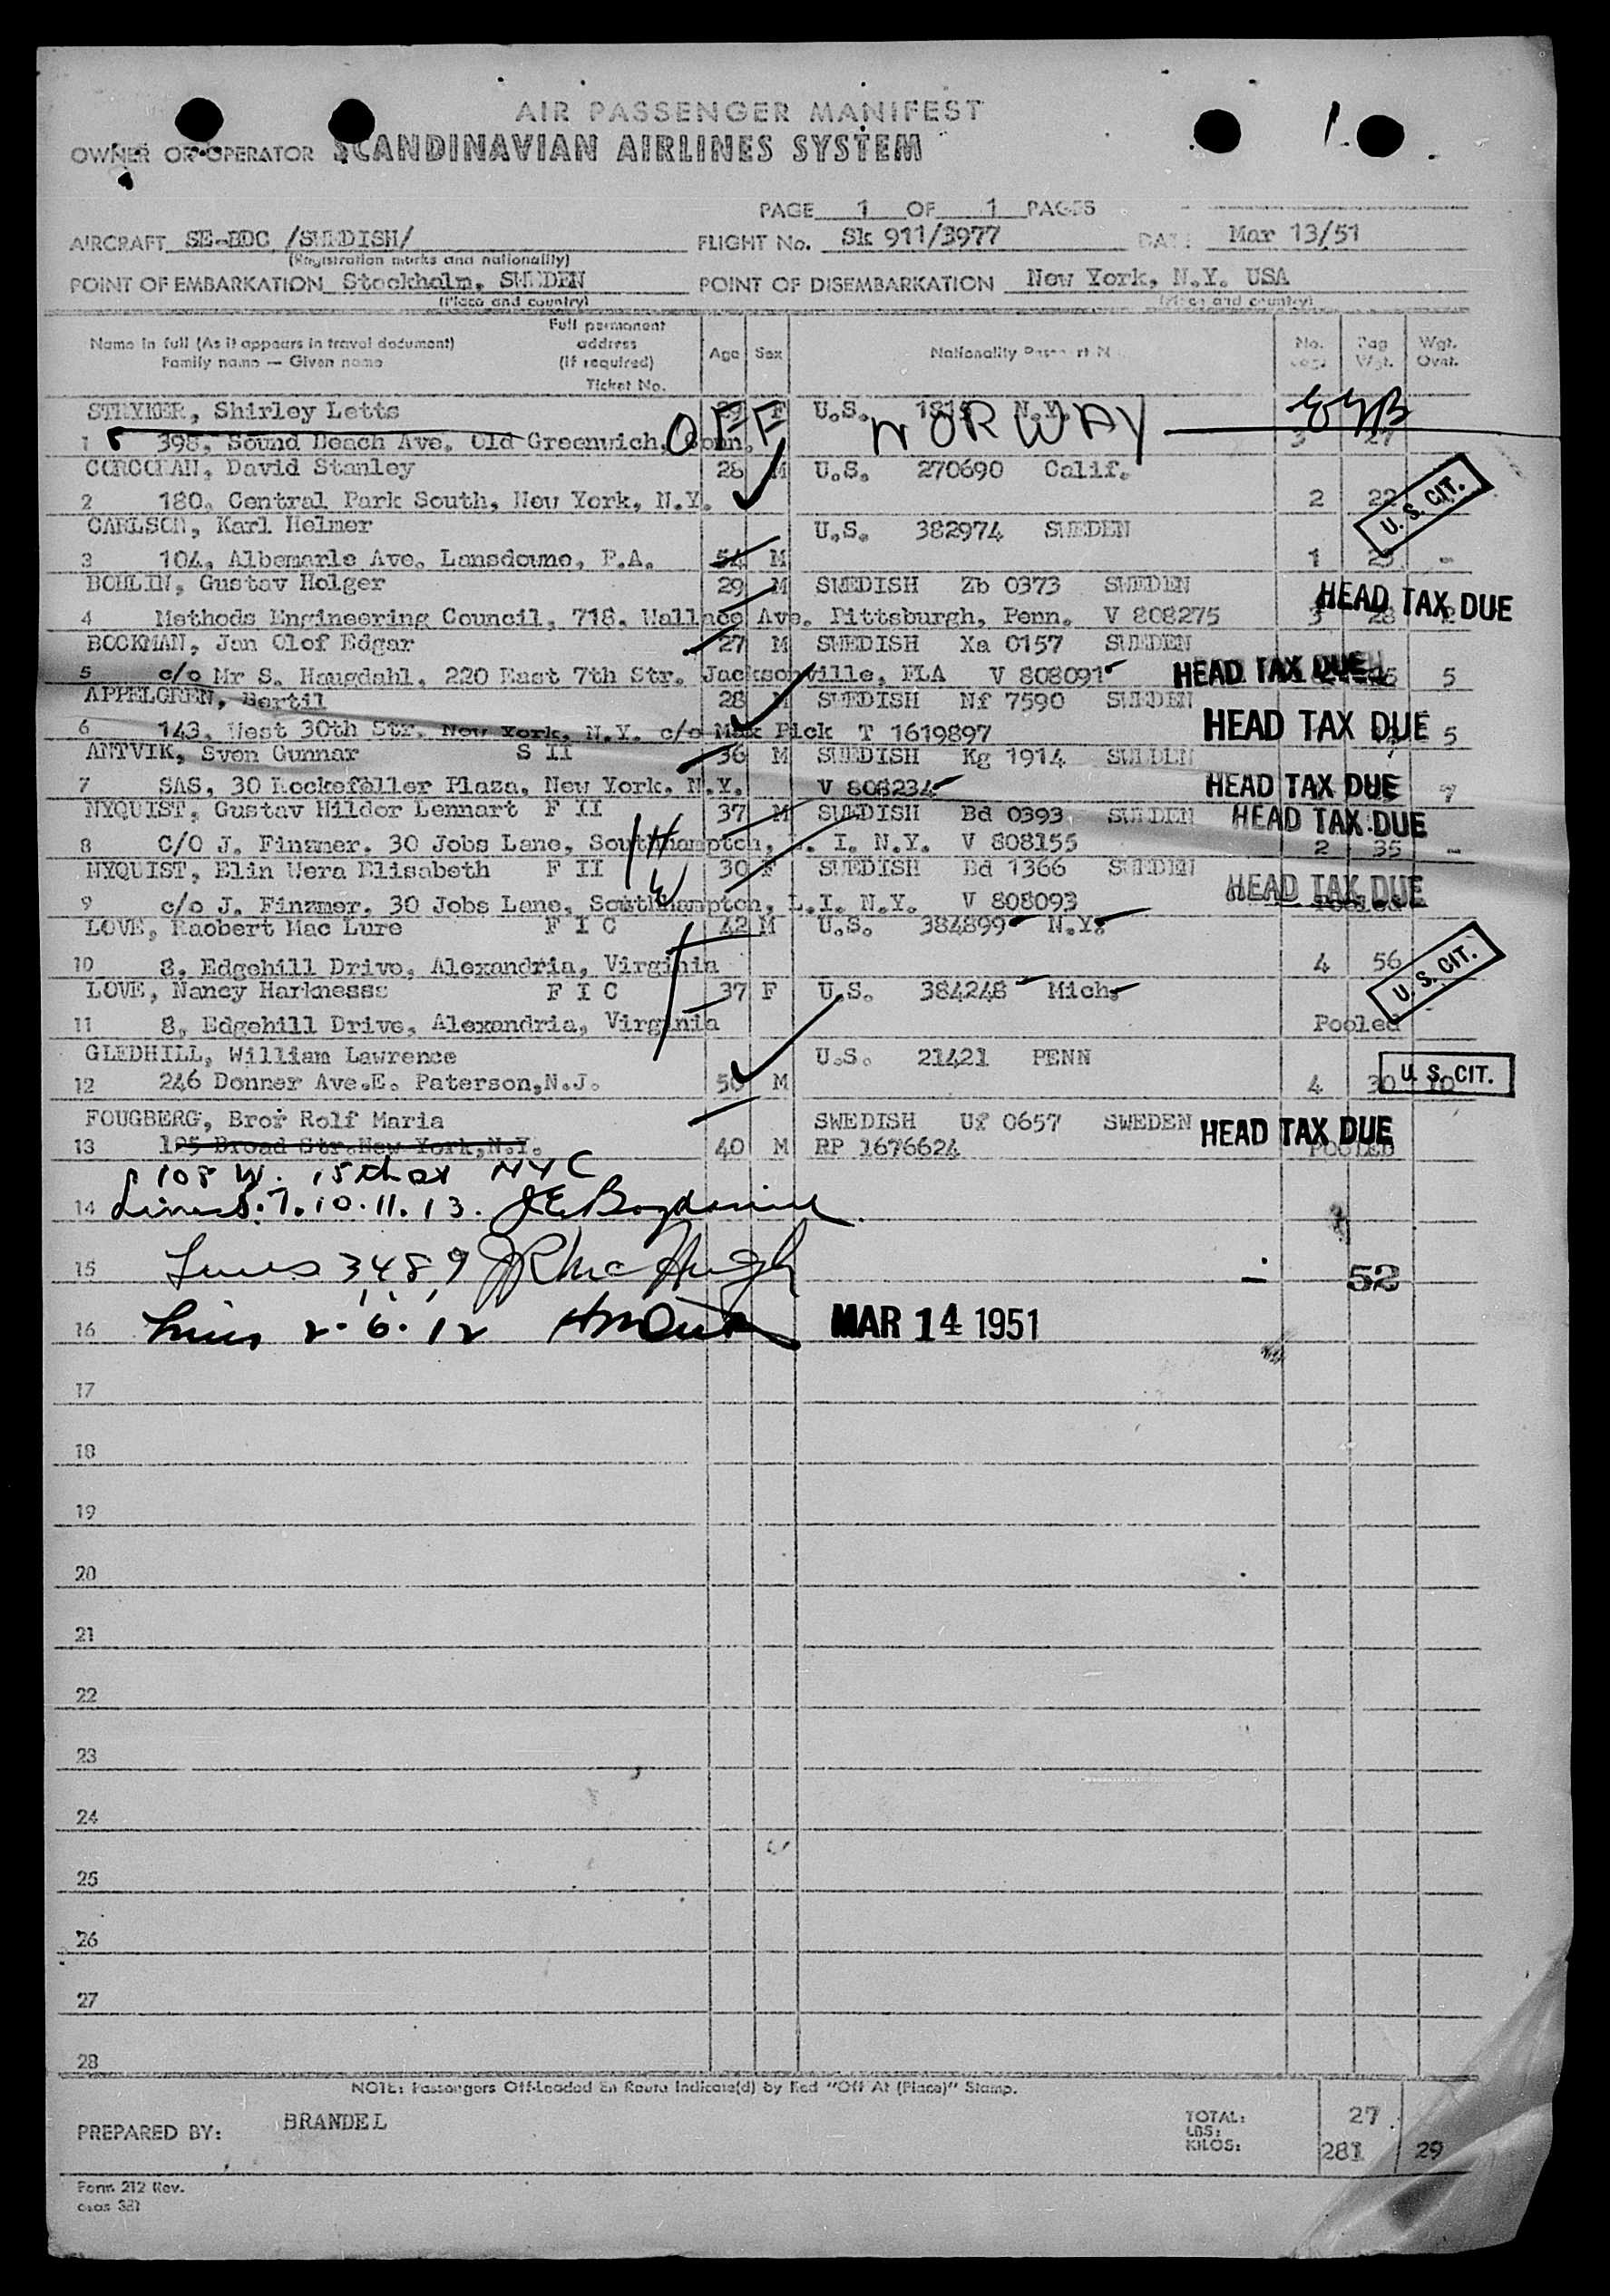 AIR PASSENGER MANIFEST
OWNER OR OPERATOR SCANDINAVIAN AIRLINES SYSTEM
PAGE 1 OF 1 PAGES
AIRCRAFT SE-BDC /SWEDISH/ FLIGHT No. Sk 911/3977 DATE Mar 13/51
(Registration marks and nationality)
POINT OF EMBARKATION Stockholm, SWEDEN POINT OF DISEMBARKATION New York, N.Y. USA
(Place and country) (Place and country)
Name in full (As it appears in travel document) Family name — Given name Full permanent address (if required) Ticket No. Age Sex Nationality Passport N No. Bag Wgt. Wgt. Ovnt.
STRYKER, Shirley Letts 29 F U.S. N.Y.
OFF NORWAY
1 398, Sound Beach Ave. Old Greenwich, Conn. 3 27
CORCORAN, David Stanley 28 M U.S. 270690 Calif.
2 180, Central Park South, New York, N.Y. 2 22 U. S. CIT.
CARLSON, Karl Helmer U.S. 382974 SWEDEN
3 104, Albemarle Ave. Lansdowne, P.A. 54 M 1 23 -
BOHLIN, Gustav Holger 29 M SWEDISH Zb 0373 SWEDEN
4 Methods Engineering Council, 718, Wallace Ave. Pittsburgh, Penn. V 808275 3 28 HEAD TAX DUE
BOCKMAN, Jan Olof Edgar 27 M SWEDISH Xa 0157 SWEDEN
5 c/o Mr S. Haugdahl, 220 East 7th Str. Jacksonville, FLA V 808091 HEAD TAX DUE 5
APPELGREN, Bertil 28 M SWEDISH Nf 7590 SWEDEN
6 143, West 30th Str. New York, N.Y. c/o Max Pick T 1619897 HEAD TAX DUE 5
ANTVIK, Sven Gunnar S II 36 M SWEDISH Kg 1914 SWEDEN
7 SAS, 30 Rockefeller Plaza, New York, N.Y. V 808234 HEAD TAX DUE 7
NYQUIST, Gustav Hildor Lennart F II 37 M SWEDISH Bd 0393 SWEDEN HEAD TAX DUE
8 C/O J. Finzmer. 30 Jobs Lane, Southhampton, L. I. N.Y. V 808155 2 35 -
H
W
NYQUIST, Elin Wera Elisabeth F II 30 F SWEDISH Bd 1366 SWEDEN HEAD TAX DUE
9 c/o J. Finzmer. 30 Jobs Lane, Southhampton, L.I. N.Y. V 808093 Pooled
LOVE, Raobert Mac Lure F I C 42 M U.S. 384899 N.Y.
10 8, Edgehill Drive, Alexandria, Virginia 4 56 U. S. CIT.
LOVE, Nancy Harkness F I C 37 F U.S. 384248 Mich.
11 8, Edgehill Drive, Alexandria, Virginia Pooled
GLEDHILL, William Lawrence U.S. 21421 PENN
12 246 Donner Ave.E. Paterson,N.J. 50 M 4 30 10 U. S. CIT.
FOUGBERG, Bror Rolf Maria SWEDISH Uf 0657 SWEDEN HEAD TAX DUE
13 Broad Str.New York,N.Y. 40 M RP 1676624 POOLED
108 W. 15th NYC
14 Lines 5.7.10.11.13.
15 Lines 3 4 8 9 52
16 Lines 2.6.12 MAR 14 1951
17
18
19
20
21
22
23
24
25
26
27
28
NOTE: Passengers Off-Loaded En Route Indicate(d) by Red "Off At (Place)" Stamp.
PREPARED BY: BRANDEL TOTAL: 27
LBS:
KILOS: 281 29
Form 212 Rev.